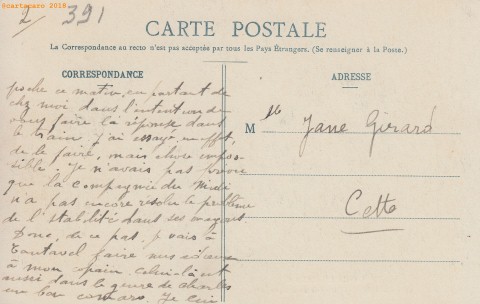 ©cartacaro 2018
2/ 391
CARTE POSTALE
La Correspondance au recto n'est pas acceptée par tous les Pays Étrangers. (Se renseigner à la Poste.)
CORRESPONDANCE
poche ce matin, en partant de
chez moi dans l'intention de
vous faire la réponse dans
le train. J'ai essayé, en effet,
de le faire, mais chose impos-
sible. Je n'avais pas
que la Compagnie du Midi
n'a pas encore résolu le problème
de l'stabilité dans ses wagons
Donc, de ce pas, je vais à
Tautavel faire mes
à mon
aussi dans le genre de Charles
un bon Je lui
ADRESSE
M lle Jane Girard
Cette